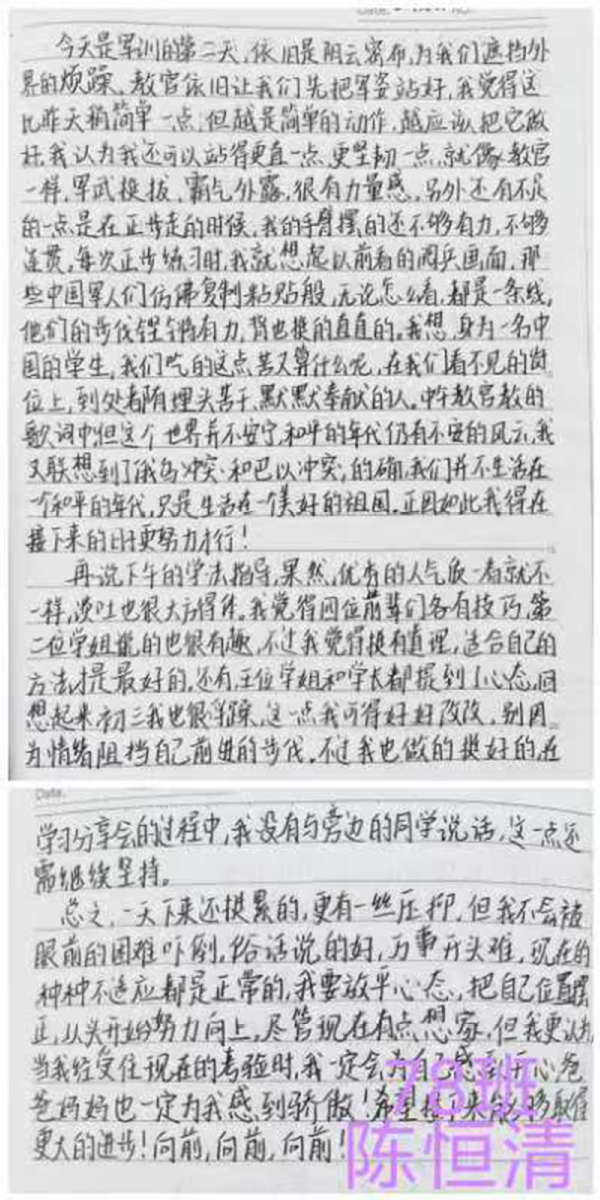 Date.
今天是军训的第二天,依旧是阴云密布,为我们遮挡外
界的烦躁。教官依旧让我们先把军姿站好,我觉得这
比昨天稍简单一点,但越是简单的动作,越应该把它做
好,我认为我还可以站得更直一点,更坚韧一点,就像教官
一样,军武挺拔、霸气外露,很有力量感,另外还有不足
的一点是在正步走的时候,我的手臂摆的还不够有力,不够
连贯,每次正步练习时,我就想起以前看的阅兵画面,那
些中国军人们仿佛复制粘贴般,无论怎么看,都是一条线,
他们的步伐铿锵有力,背也挺的直直的。我想,身为一名中
国的学生,我们吃的这点苦又算什么呢,在我们看不见的岗
位上,到处都有埋头苦干、默默奉献的人。中午教官教的
歌词中“但这个世界并不安宁,和平的年代仍有不安的风云,我
又联想到了俄乌冲突和巴以冲突,的确,我们并不生活在
一个和平的年代,只是生活在一个美好的祖国。正因如此我得在
接下来的日子更努力才行!
再说下午的学法指导,果然,优秀的人气质一看就不
一样,谈吐也很大方得体。我觉得四位前辈们各有技巧,第
二位学姐的也很有趣,不过我觉得挺有道理,适合自己的
方法才是最好的,还有,三位学姐和学长都提到了心态,回
想起来初三我也很浮躁,这一点我可得好好改改,别因
为情绪阻挡自己前进的步伐。不过我也做的挺好的,在
Date.
学习分享会的过程中,我没有与旁边的同学说话,这一点还
需继续坚持。
总之,一天下来还挺累的,更有一丝压抑,但我不会被
眼前的困难吓倒。俗话说的好,万事开头难,现在的
种种不适应都是正常的,我要放平心态,把自己位置摆
正,从头开始努力向上。尽管现在有点想家,但我更认为
当我经受住现在的考验时,我一定会为自己感到开心,爸
爸妈妈也一定为我感到骄傲!希望接下来能够取得
更大的进步!向前,向前,向前!
78班
陈恒清